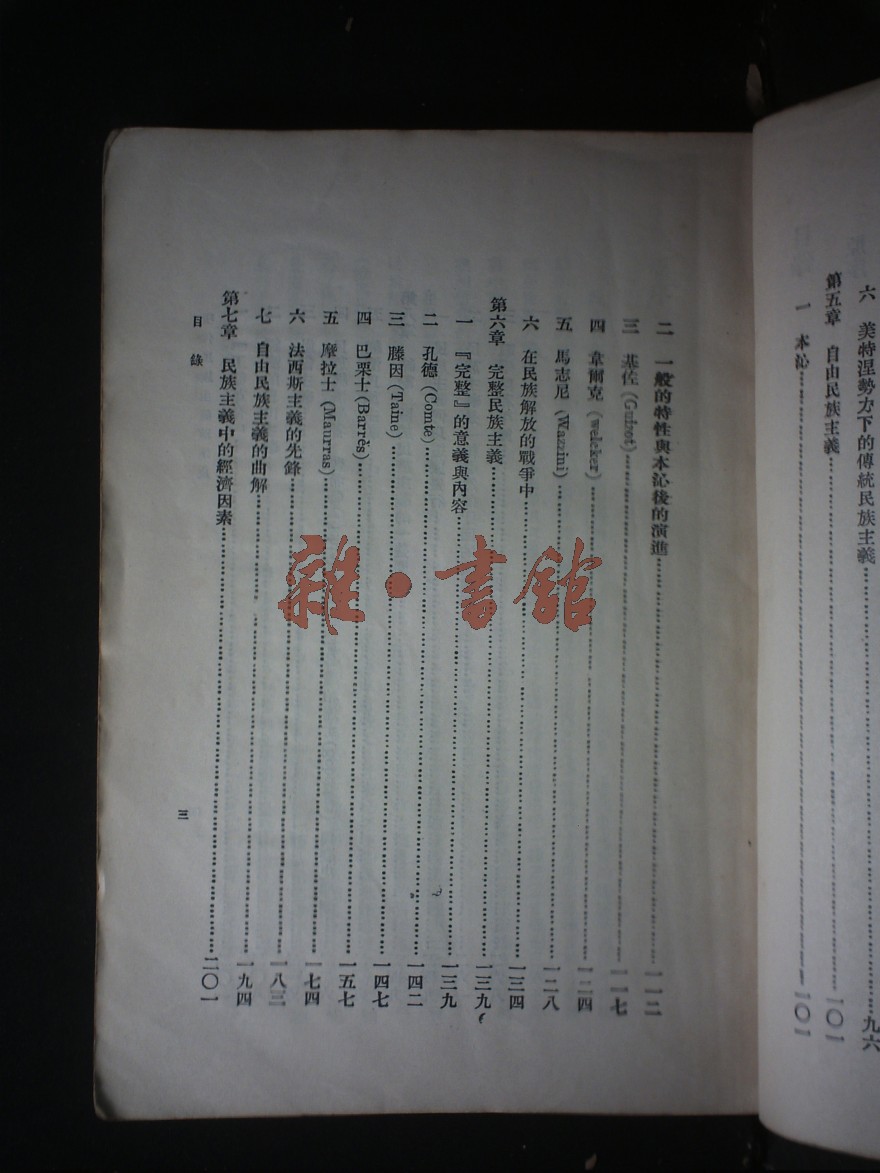 六 美特涅勢力下的傳統民族主義……九六
第五章 自由民族主義……一〇一
一 本沁……一〇一
二 一般的特性與本沁後的演進……一一二
三 基佐(Guizot)……一一七
四 韋爾克(weleker)……一二四
五 馬志尼(Wazzini)……一二八
六 在民族解放的戰爭中……一三四
第六章 完整民族主義……一三九
一 『完整』的意義與內容……一三九
二 孔德(Comte)……一四二
三 滕因(Taine)……一四七
四 巴栗士(Barrès)……一五七
五 摩拉士(Maurras)……一七四
六 法西斯主義的先鋒……一八三
七 自由民族主義的曲解……一九四
第七章 民族主義中的經濟因素……二〇一
目錄
三
雜·書館